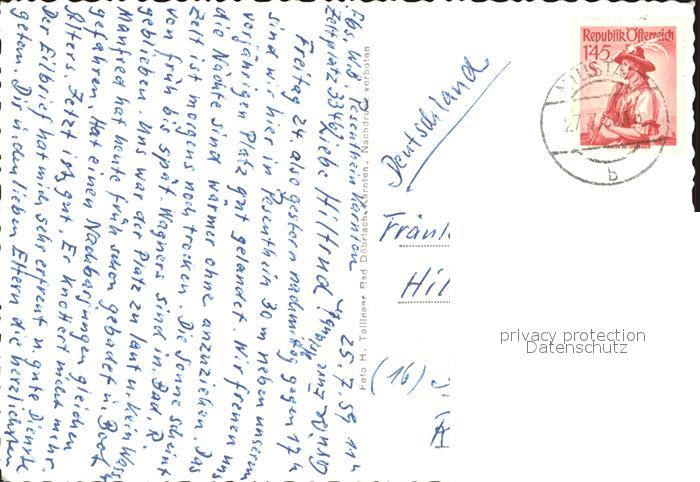 Abs. W.B. Pesenthein Kärnten 25.7.59 11 h
Zeltplatz 3346 Liebe Hiltrud!
Freitag 24. also gestern nachmittag gegen 17 h
sind wir hier in Pesenthein 30 m neben unserem
vorjährigen Platz gut gelandet. Wir freuen uns
die Nächte sind wärmer ohne anzuziehen. Das
Zelt ist morgens noch trocken. Die Sonne scheint
von früh bis spät. Wagners sind in Bad. R.
geblieben. Uns war der Platz zu laut u. kein Wass.
Manfred hat heute früh schon gebadet u. Boot
gefahren. Hat einen Nachbarjungen gleichen
Alters. Jetzt ists gut. Er knottert nicht mehr.
Der Eilbrief hat mich sehr erfreut u. gute Dienste
getan. Dir u. den lieben Eltern die herzlichsten
Foto H. Tollinger Bad Döbriach, Kärnten. Nachdruck verboten
Deutschland
Republik Österreich
1'45
27.7.
b
Fräul
Hil
(16)
privacy protection
Datenschutz